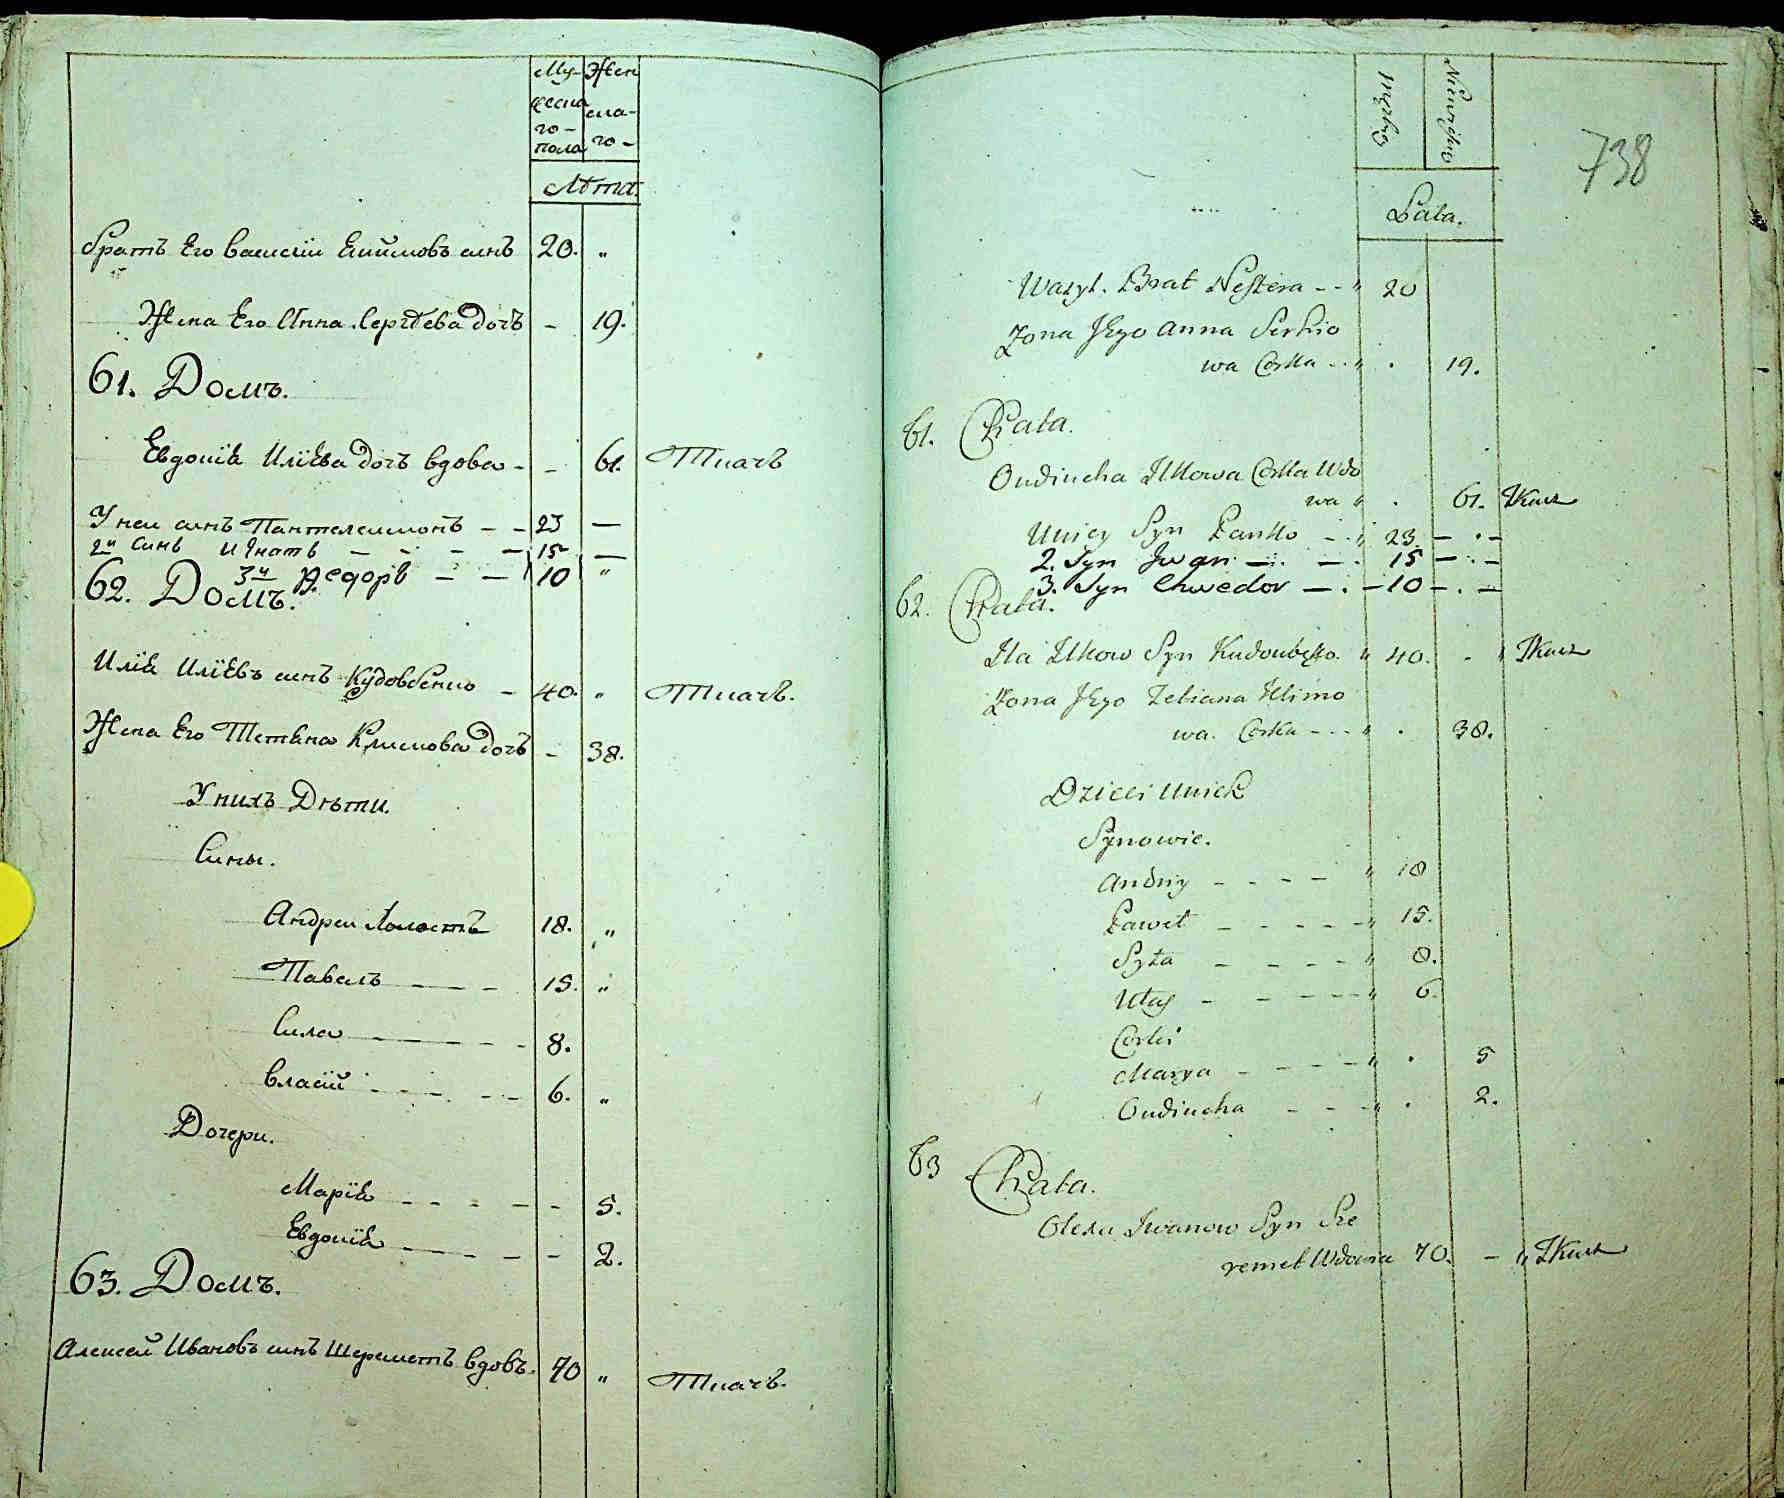 Му-
ческа
го-
пола
Жен
ска-
го-
Лѣта.
братъ Его василіи Екимовъ синъ 20. „
Жена Его Анна Сергѣева дочъ - 19.
61. Домъ.
Евдокія Иліева дочъ вдова - - 61. Ткачъ
У неи синъ Пантелеимонъ - - 23 —
2й Синъ Игнатъ - - - - 15 —
3й Федоръ - - 10 „
62. Домъ.
Илія Иліевъ синъ Кудовбенко - 40. „ Ткачъ.
Жена Его Тетяна Климова дочъ - 38.
У нихъ Дѣти.
Сины.
Андреи Холостъ 18. „
Павелъ - - - 15. „
Сила - - - - - 8.
Власій - - - - - 6. „
Дочери.
Марія - - - - - 5.
Евдокія - - - - - 2.
63. Домъ.
Алексей Ивановъ синъ Шереметъ вдовъ. 70 „ Ткачъ.
Męzkiey
Niewieskiey
738
Lata.
Wasyl. Brat Nestera - - „ 20
Zona Jego Anna Serhio
wa Corka - - „ . 19.
61. Chata.
Oudiucha Ilkowa Corka Wdo
wa „ . 61. Tkacz
Unicy Syn Panko - - „ 23 - . -
2. Syn Jwan - . - . 15 - . -
3. Syn Chwedor - . - 10 - . -
62. Chata.
Ila Ilkow Syn Kudoubenko. „ 40. . „ Tkacz
Zona Jego Tetiana Klimo
wa. Corka - - - „ . 38.
Dzieci Unich
Synowie.
Andriy - - - - „ 18
Paweł - - - - - „ 15.
Syła - - - - - „ 8.
Ułas - - - - - „ 6.
Corki
Marya - - - - - „ . 5
Oudiucha - - - „ . 2.
63 Chata.
Olexa Jwanow Syn Sze
remet Wdowa 70. - „ Tkacz